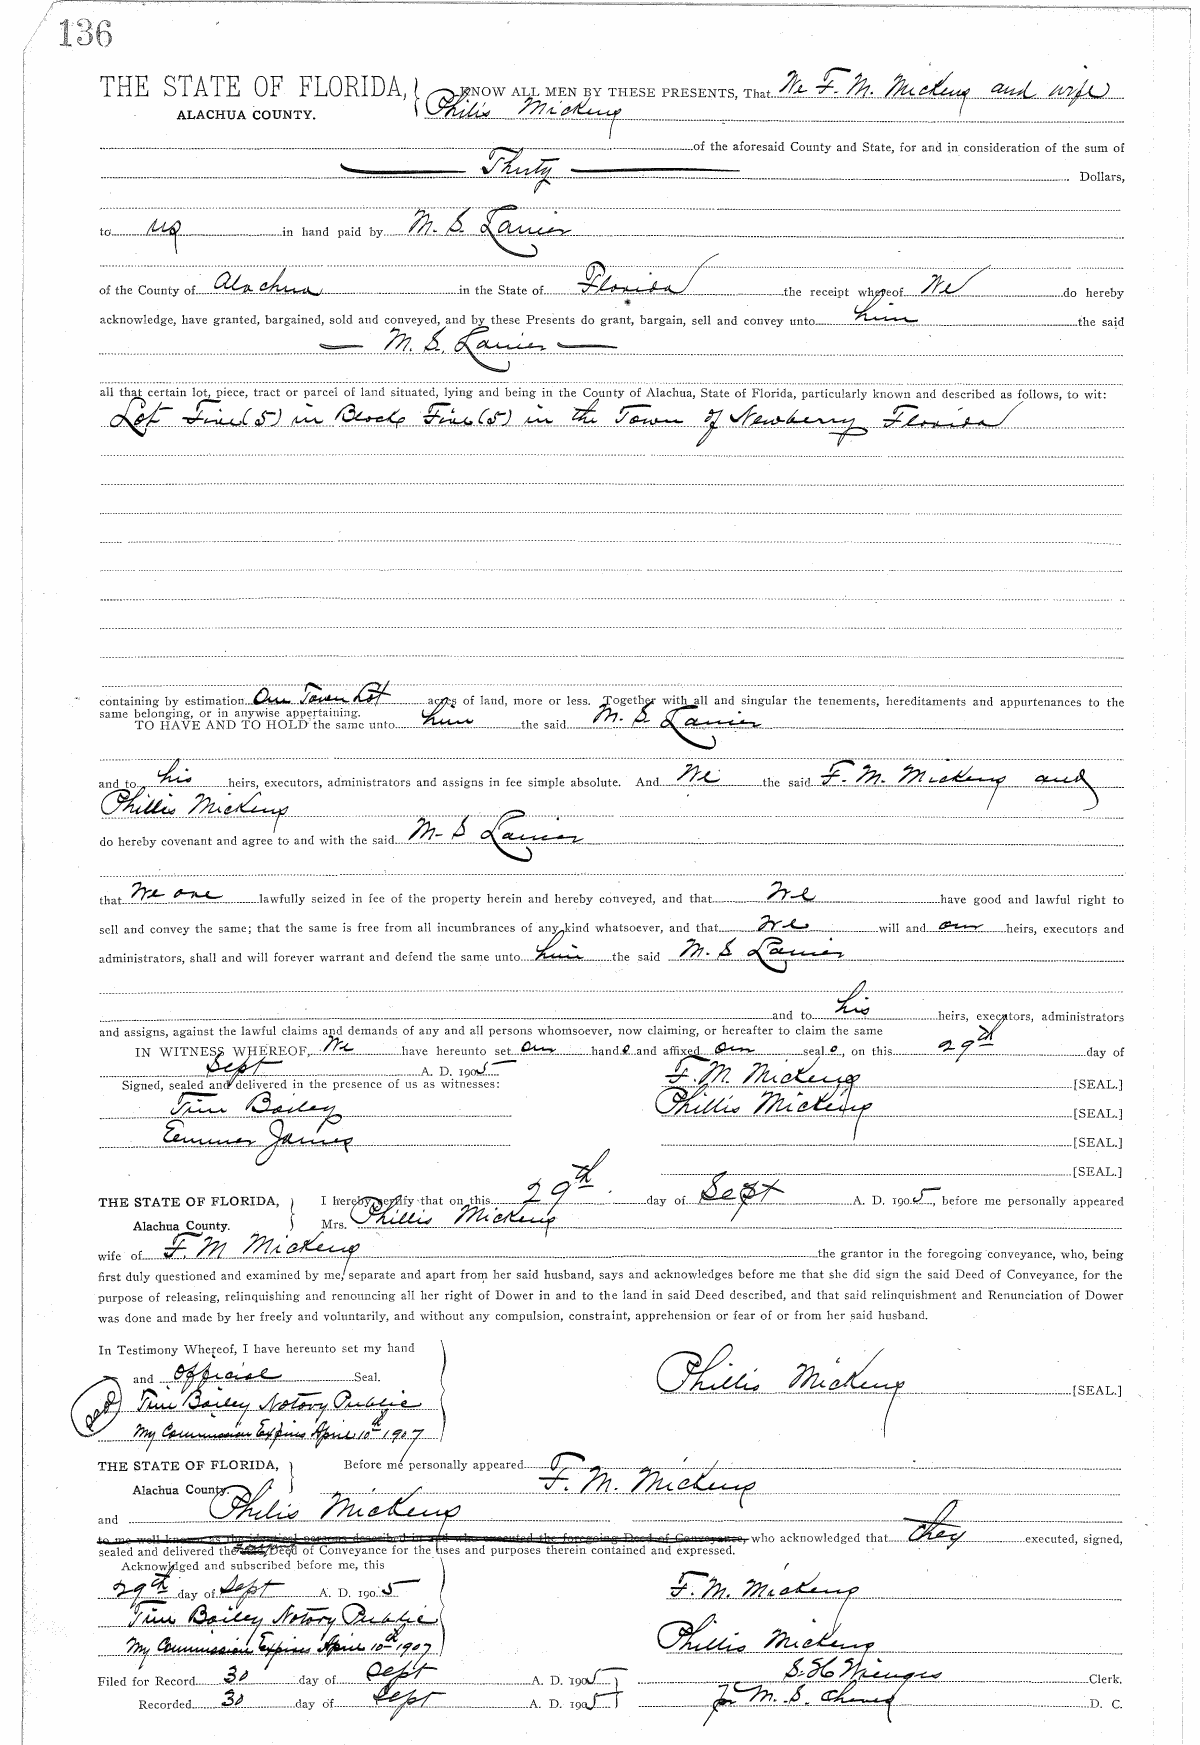 136
THE STATE OF FLORIDA, KNOW ALL MEN BY THESE PRESENTS, That We F. M. Mickens and wife
ALACHUA COUNTY. Philis Mickens
of the aforesaid County and State, for and in consideration of the sum of
Thirty Dollars,
to us in hand paid by M. S. Lanier
of the County of Alachua in the State of Florida the receipt whereof We do hereby
acknowledge, have granted, bargained, sold and conveyed, and by these Presents do grant, bargain, sell and convey unto him the said
M. S. Lanier
all that certain lot, piece, tract or parcel of land situated, lying and being in the County of Alachua, State of Florida, particularly known and described as follows, to wit:
Lot Five (5) in Block Five (5) in the Town of Newberry Florida
containing by estimation One Town Lot acres of land, more or less. Together with all and singular the tenements, hereditaments and appurtenances to the
same belonging, or in anywise appertaining.
TO HAVE AND TO HOLD the same unto him the said M. S. Lanier
and to his heirs, executors, administrators and assigns in fee simple absolute. And We the said F. M. Mickens and
Phillis Mickens
do hereby covenant and agree to and with the said M. S Lanier
that We are lawfully seized in fee of the property herein and hereby conveyed, and that We have good and lawful right to
sell and convey the same; that the same is free from all incumbrances of any kind whatsoever, and that We will and our heirs, executors and
administrators, shall and will forever warrant and defend the same unto him the said M. S Lanier
and to his heirs, executors, administrators
and assigns, against the lawful claims and demands of any and all persons whomsoever, now claiming, or hereafter to claim the same
IN WITNESS WHEREOF, We have hereunto set our hands and affixed our seals, on this 29th day of
Sept A. D. 1905
Signed, sealed and delivered in the presence of us as witnesses: F. M. Mickens [SEAL.]
Tim Bailey Phillis Mickens [SEAL.]
Emmer James [SEAL.]
[SEAL.]
THE STATE OF FLORIDA, I hereby certify that on this 29th day of Sept A. D. 1905, before me personally appeared
Alachua County. Mrs. Phillis Mickens
wife of F. M Mickens the grantor in the foregoing conveyance, who, being
first duly questioned and examined by me, separate and apart from her said husband, says and acknowledges before me that she did sign the said Deed of Conveyance, for the
purpose of releasing, relinquishing and renouncing all her right of Dower in and to the land in said Deed described, and that said relinquishment and Renunciation of Dower
was done and made by her freely and voluntarily, and without any compulsion, constraint, apprehension or fear of or from her said husband.
In Testimony Whereof, I have hereunto set my hand
and official Seal. Phillis Mickens [SEAL.]
Seal Tim Bailey Notary Public
My Commission Expires April 10th 1907
THE STATE OF FLORIDA, Before me personally appeared F. M. Mickens
Alachua County.
and Philis Mickens
to me well known as the identical persons described in and who executed the foregoing Deed of Conveyance, who acknowledged that they executed, signed,
sealed and delivered the Deed of Conveyance for the uses and purposes therein contained and expressed.
Acknowledged and subscribed before me, this
29th day of Sept A. D. 1905 F. M. Mickens
Tim Bailey Notary Public
My Commission Expires April 10th 1907 Phillis Mickens
Filed for Record 30 day of Sept A. D. 1905 S. H. Wienges Clerk.
Recorded 30 day of Sept A. D. 1905 M. S. D. C.